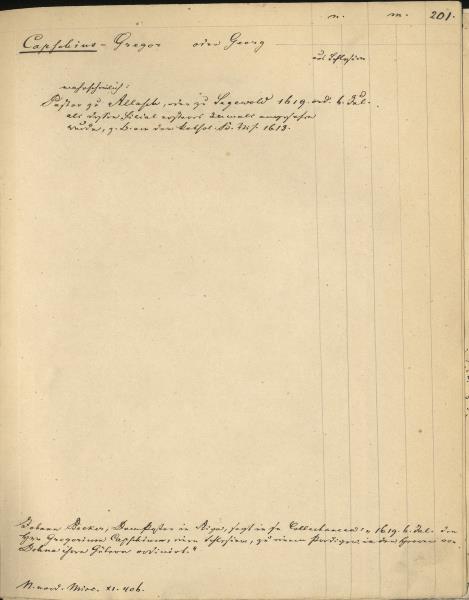 n. m. 201.
Capsebius - Gregor oder Georg
aus Schlesien
wahrscheinlich:
Pastor zu Allasch, oder zu Segewold 1619. ord. 6. Jul.
als dessen Filial ersteres damals angesehen
wurde, z. B. in der kathol. K. Visit. 1613.
Johann Becker, Dompastor in Riga, sagt in se. Collectaneen: "1619. 6. Jul. den
Hrn Gregorium Capsebium, einen Schlesier, zu einem Prediger in den Herren von
Dohna ihre Gütern ordinirt."
N. nord. Misc. XI. 406.